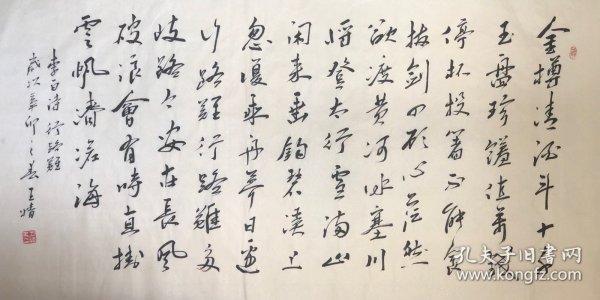 金樽清酒斗十千
玉盘珍羞值萬钱
停杯投箸不能食
拔剑四顾心茫然
欲渡黄河冰塞川
将登太行雪满山
闲来垂钓碧溪上
忽復乘舟夢日边
行路難行路難多
歧路今安在長风
破浪會有時直掛
雲帆濟滄海
李白诗行路難
歲次辛卯之春王清
孔夫子旧書网
www.kongfz.com